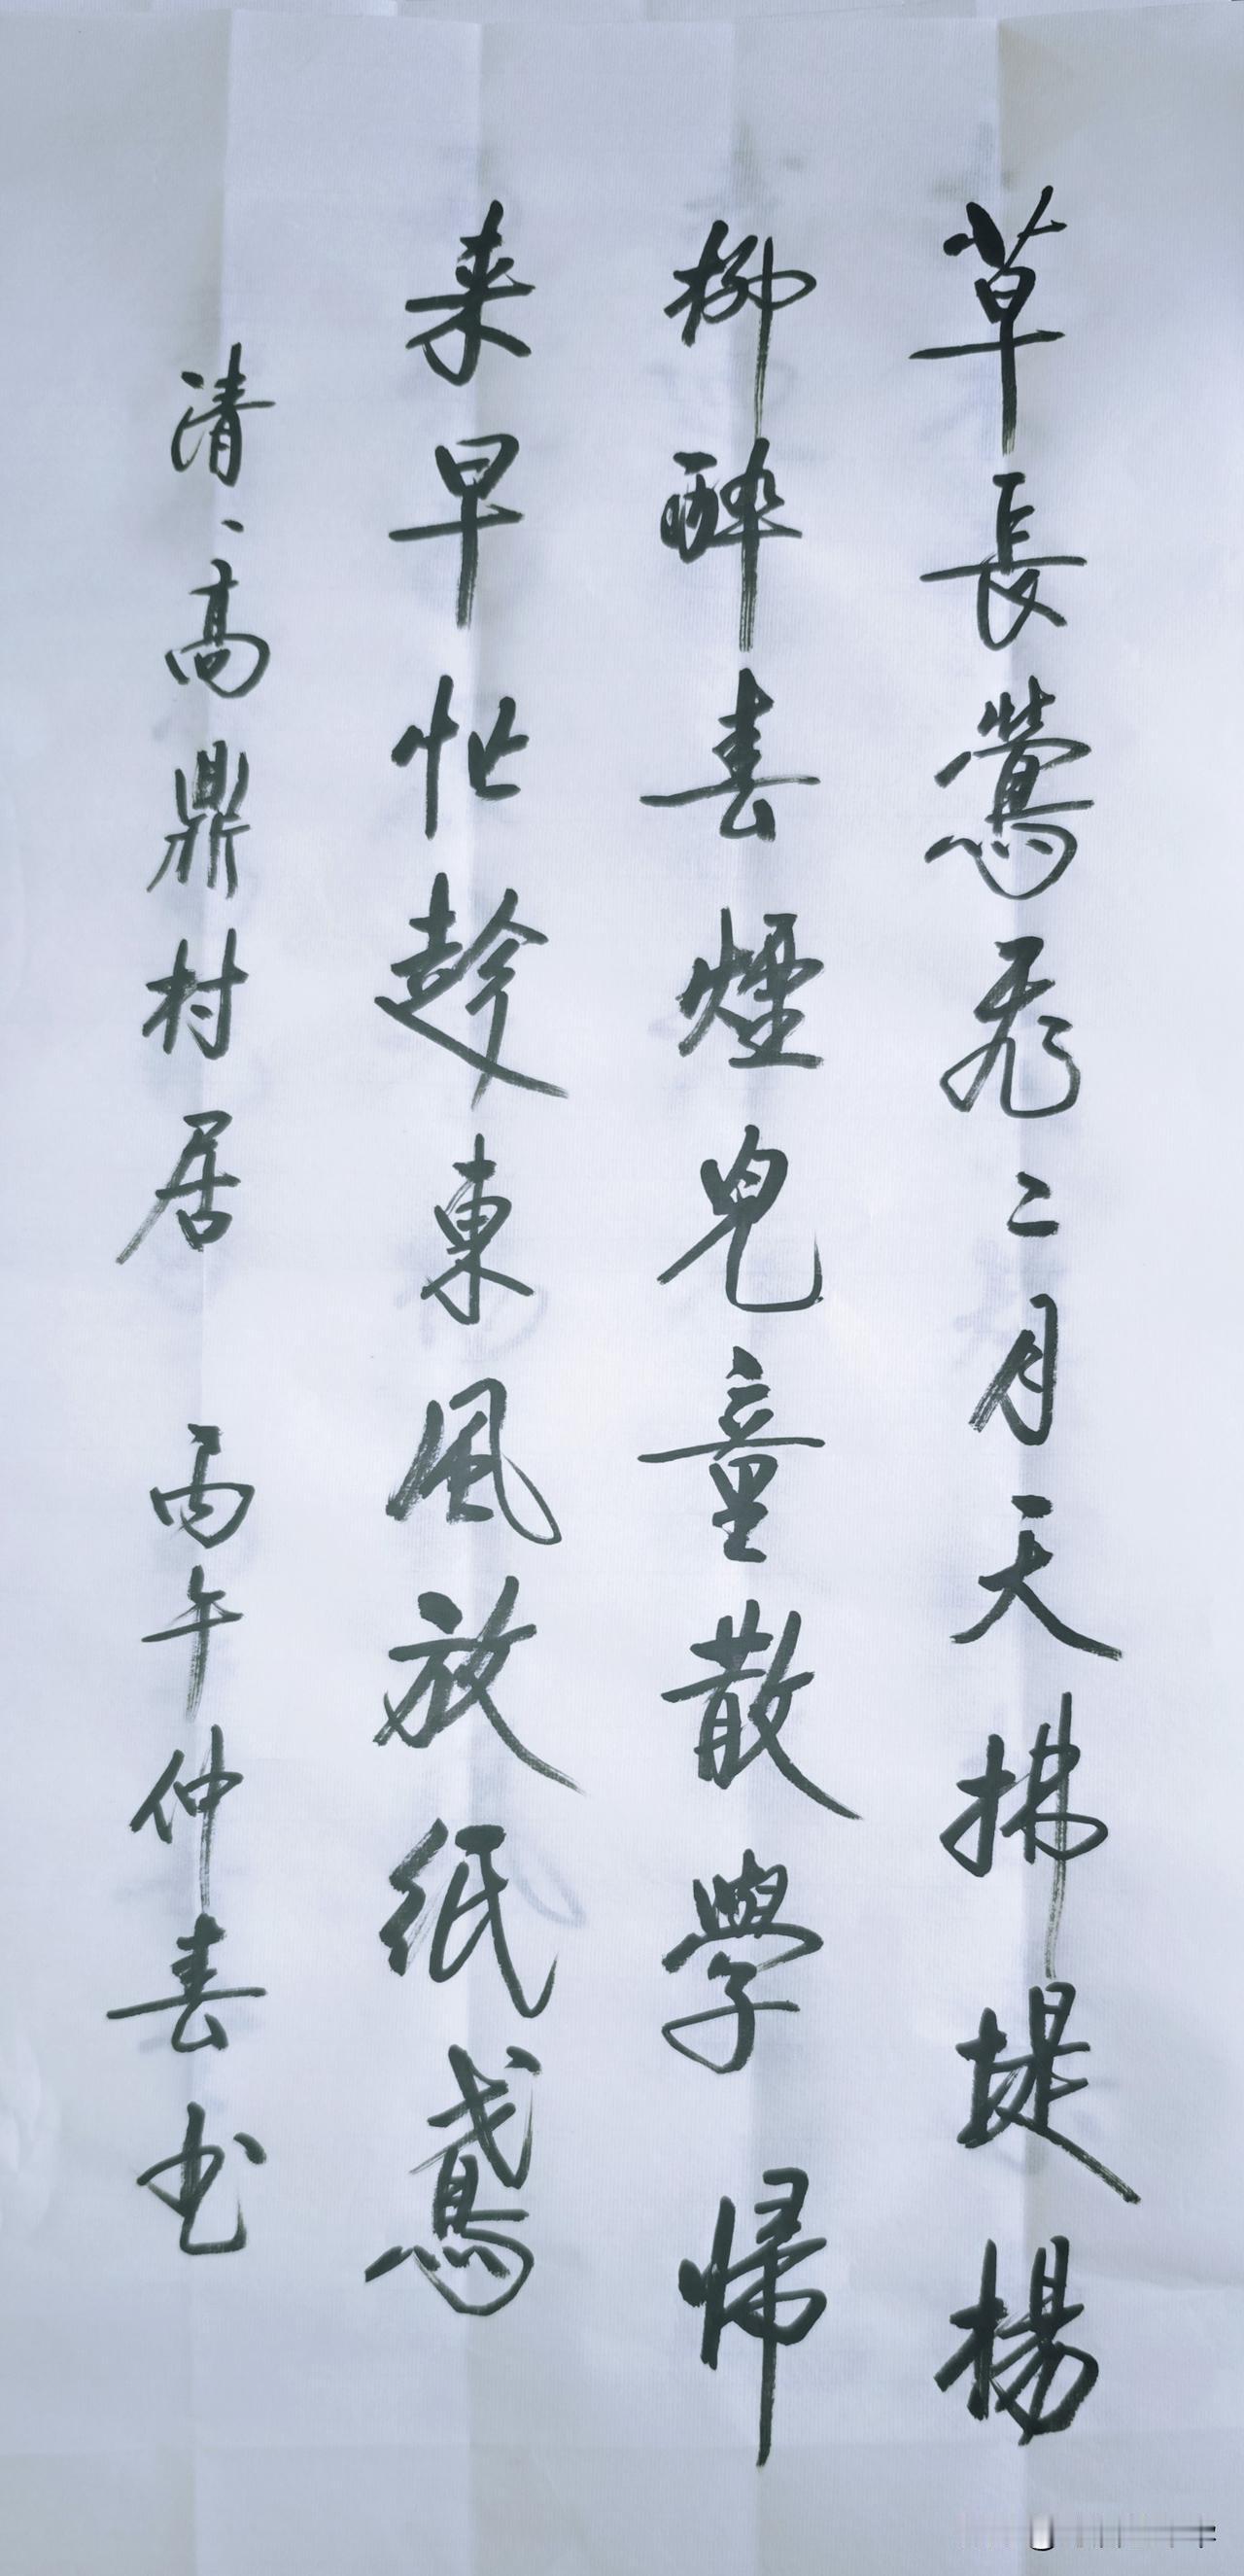 草長鶯飛二月天拂堤楊
柳醉春煙兒童散學歸
来早忙趁東風放紙鳶
清、高鼎村居 丙午仲春书